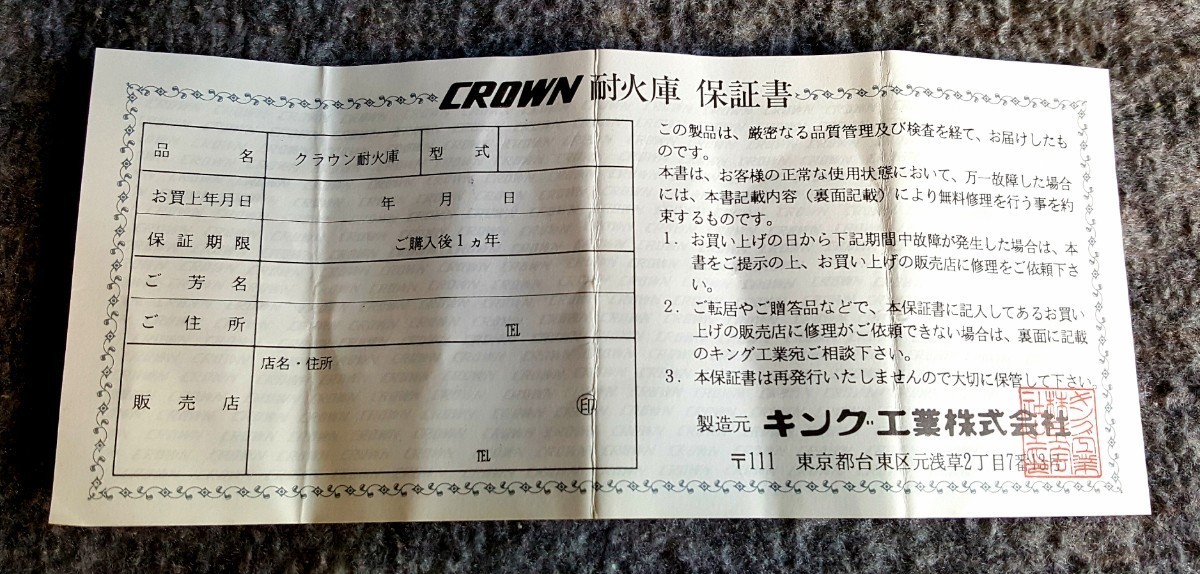 CROWN 耐火庫 保証書
品名 クラウン耐火庫 型式
お買上年月日 年 月 日
保証期限 ご購入後1ヵ年
ご芳名
ご住所 TEL
販売店 店名・住所
印
TEL
この製品は、厳密なる品質管理及び検査を経て、お届けしたも
のです。
本書は、お客様の正常な使用状態において、万一故障した場合
には、本書記載内容（裏面記載）により無料修理を行う事を約
束するものです。
1. お買い上げの日から下記期間中故障が発生した場合は、本
書をご提示の上、お買い上げの販売店に修理をご依頼下さ
い。
2. ご転居やご贈答品などで、本保証書に記入してあるお買い
上げの販売店に修理がご依頼できない場合は、裏面に記載
のキング工業宛ご相談下さい。
3. 本保証書は再発行いたしませんので大切に保管して下さい。
製造元 キング工業株式会社
〒111 東京都台東区元浅草2丁目7番